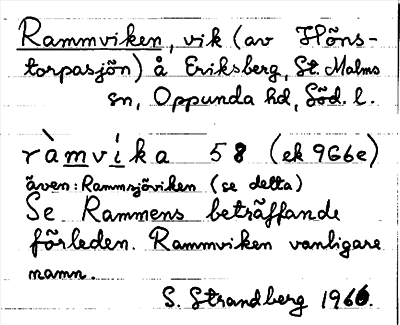 Rammviken, vik (av Höns-
torpasjön) å Eriksberg, St. Malms
sn, Oppunda hd, Söd. l.
ràmvi̇ka 58 (ek 9G6e)
även: Rammsjöviken (se detta)
Se Rammens beträffande
förleden. Rammviken vanligare
namn.
S. Strandberg 1966.